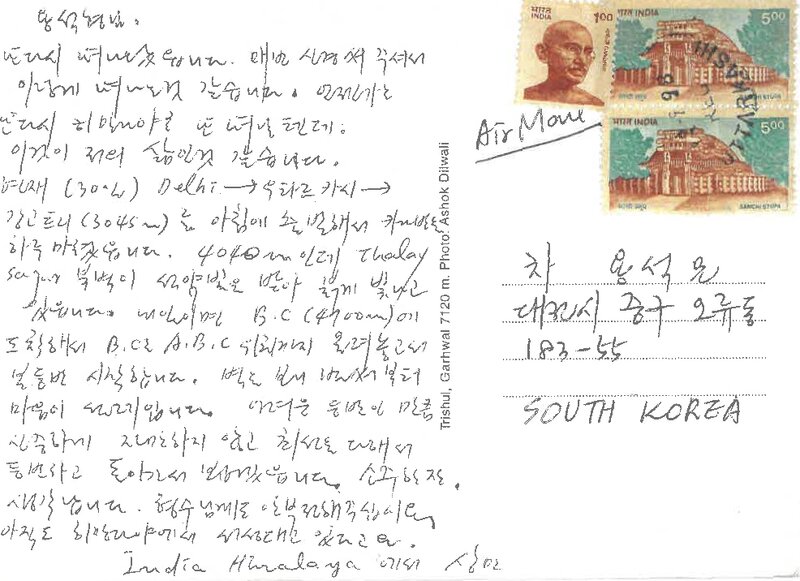 용석형님.
또다시 떠나왔습니다. 매번 신경써 주셔서
이렇게 떠나온것 같습니다. 언젠가는
또다시 히말라야로 또 떠날텐데.
이것이 저의 삶인것 같습니다.
현재 (30일) Delhi → 우타르카시 →
강고트리 (3045m)를 아침에 출발해서 카라반을
하루 마쳤습니다. 4040m인데 Thalay
sagar 북벽이 석양빛을 받아 붉게 빛나고
있습니다. 내일이면 B.C (4900m)에
도착해서 B.C로 A.B.C 위치까지 올려놓고서
벌등반 시작합니다. 벽도
마음이 설레입니다. 어려운 등반인 만큼
신중하게 자만하지 않고 최선을 다해서
등반하고 돌아가서 뵙겠습니다. 소주한잔.
생각납니다. 형수님께도 안부전해주십시요
아직도 히말라야에서 서성대고 있다고요
India Himalaya 에서 상만
भारत INDIA
1.00
भारत INDIA
5.00
UTTARKASHI
भारत INDIA
5.00
SANCHI STUPA
Air
Trishul, Garhwal 7120 m. Photo: Ashok Dilwali
차 용석
대전시 중구 오류동
183-55
SOUTH KOREA